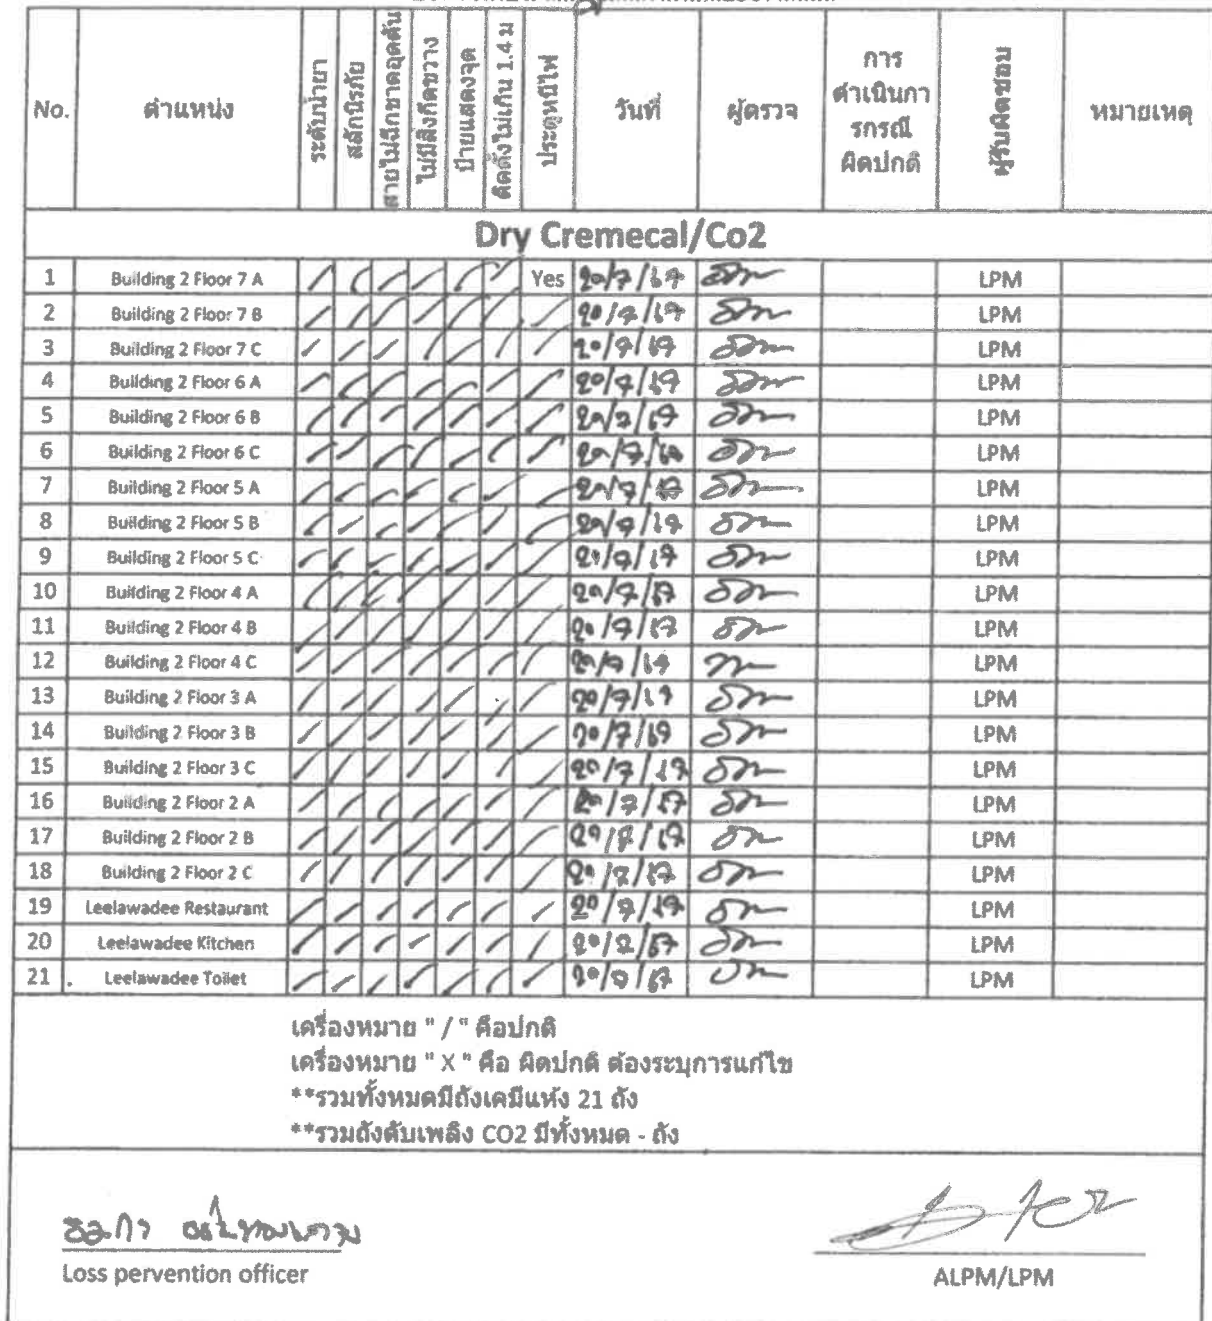 No. ตำแหน่ง ระดับน้ำยา สลักนิรภัย สายไม่ฉีกขาดอุดตัน ไม่มีสิ่งกีดขวาง ป้ายแสดงจุด ติดตั้งไม่เกิน 1.4 ม ประตูหนีไฟ วันที่ ผู้ตรวจ การดำเนินการกรณีผิดปกติ ผู้รับผิดชอบ หมายเหตุ
Dry Cremecal/Co2
1 Building 2 Floor 7 A / / / / / / Yes 20/7/67 LPM
2 Building 2 Floor 7 B / / / / / / / 20/7/67 LPM
3 Building 2 Floor 7 C / / / / / / / 20/7/67 LPM
4 Building 2 Floor 6 A / / / / / / / 20/7/67 LPM
5 Building 2 Floor 6 B / / / / / / / 20/7/67 LPM
6 Building 2 Floor 6 C / / / / / / / 20/7/67 LPM
7 Building 2 Floor 5 A / / / / / / / 20/7/67 LPM
8 Building 2 Floor 5 B / / / / / / / 20/7/67 LPM
9 Building 2 Floor 5 C / / / / / / / 20/7/67 LPM
10 Building 2 Floor 4 A / / / / / / / 20/7/67 LPM
11 Building 2 Floor 4 B / / / / / / / 20/7/67 LPM
12 Building 2 Floor 4 C / / / / / / / 20/7/67 LPM
13 Building 2 Floor 3 A / / / / / / / 20/7/67 LPM
14 Building 2 Floor 3 B / / / / / / / 20/7/67 LPM
15 Building 2 Floor 3 C / / / / / / / 20/7/67 LPM
16 Building 2 Floor 2 A / / / / / / / 20/7/67 LPM
17 Building 2 Floor 2 B / / / / / / / 20/7/67 LPM
18 Building 2 Floor 2 C / / / / / / / 20/7/67 LPM
19 Leelawadee Restaurant / / / / / / / 20/7/67 LPM
20 Leelawadee Kitchen / / / / / / / 20/7/67 LPM
21 . Leelawadee Toilet / / / / / / / 20/7/67 LPM
เครื่องหมาย " / " คือปกติ
เครื่องหมาย " X " คือ ผิดปกติ ต้องระบุการแก้ไข
**รวมทั้งหมดมีถังเคมีแห้ง 21 ถัง
**รวมถังดับเพลิง CO2 มีทั้งหมด - ถัง
Loss pervention officer
ALPM/LPM